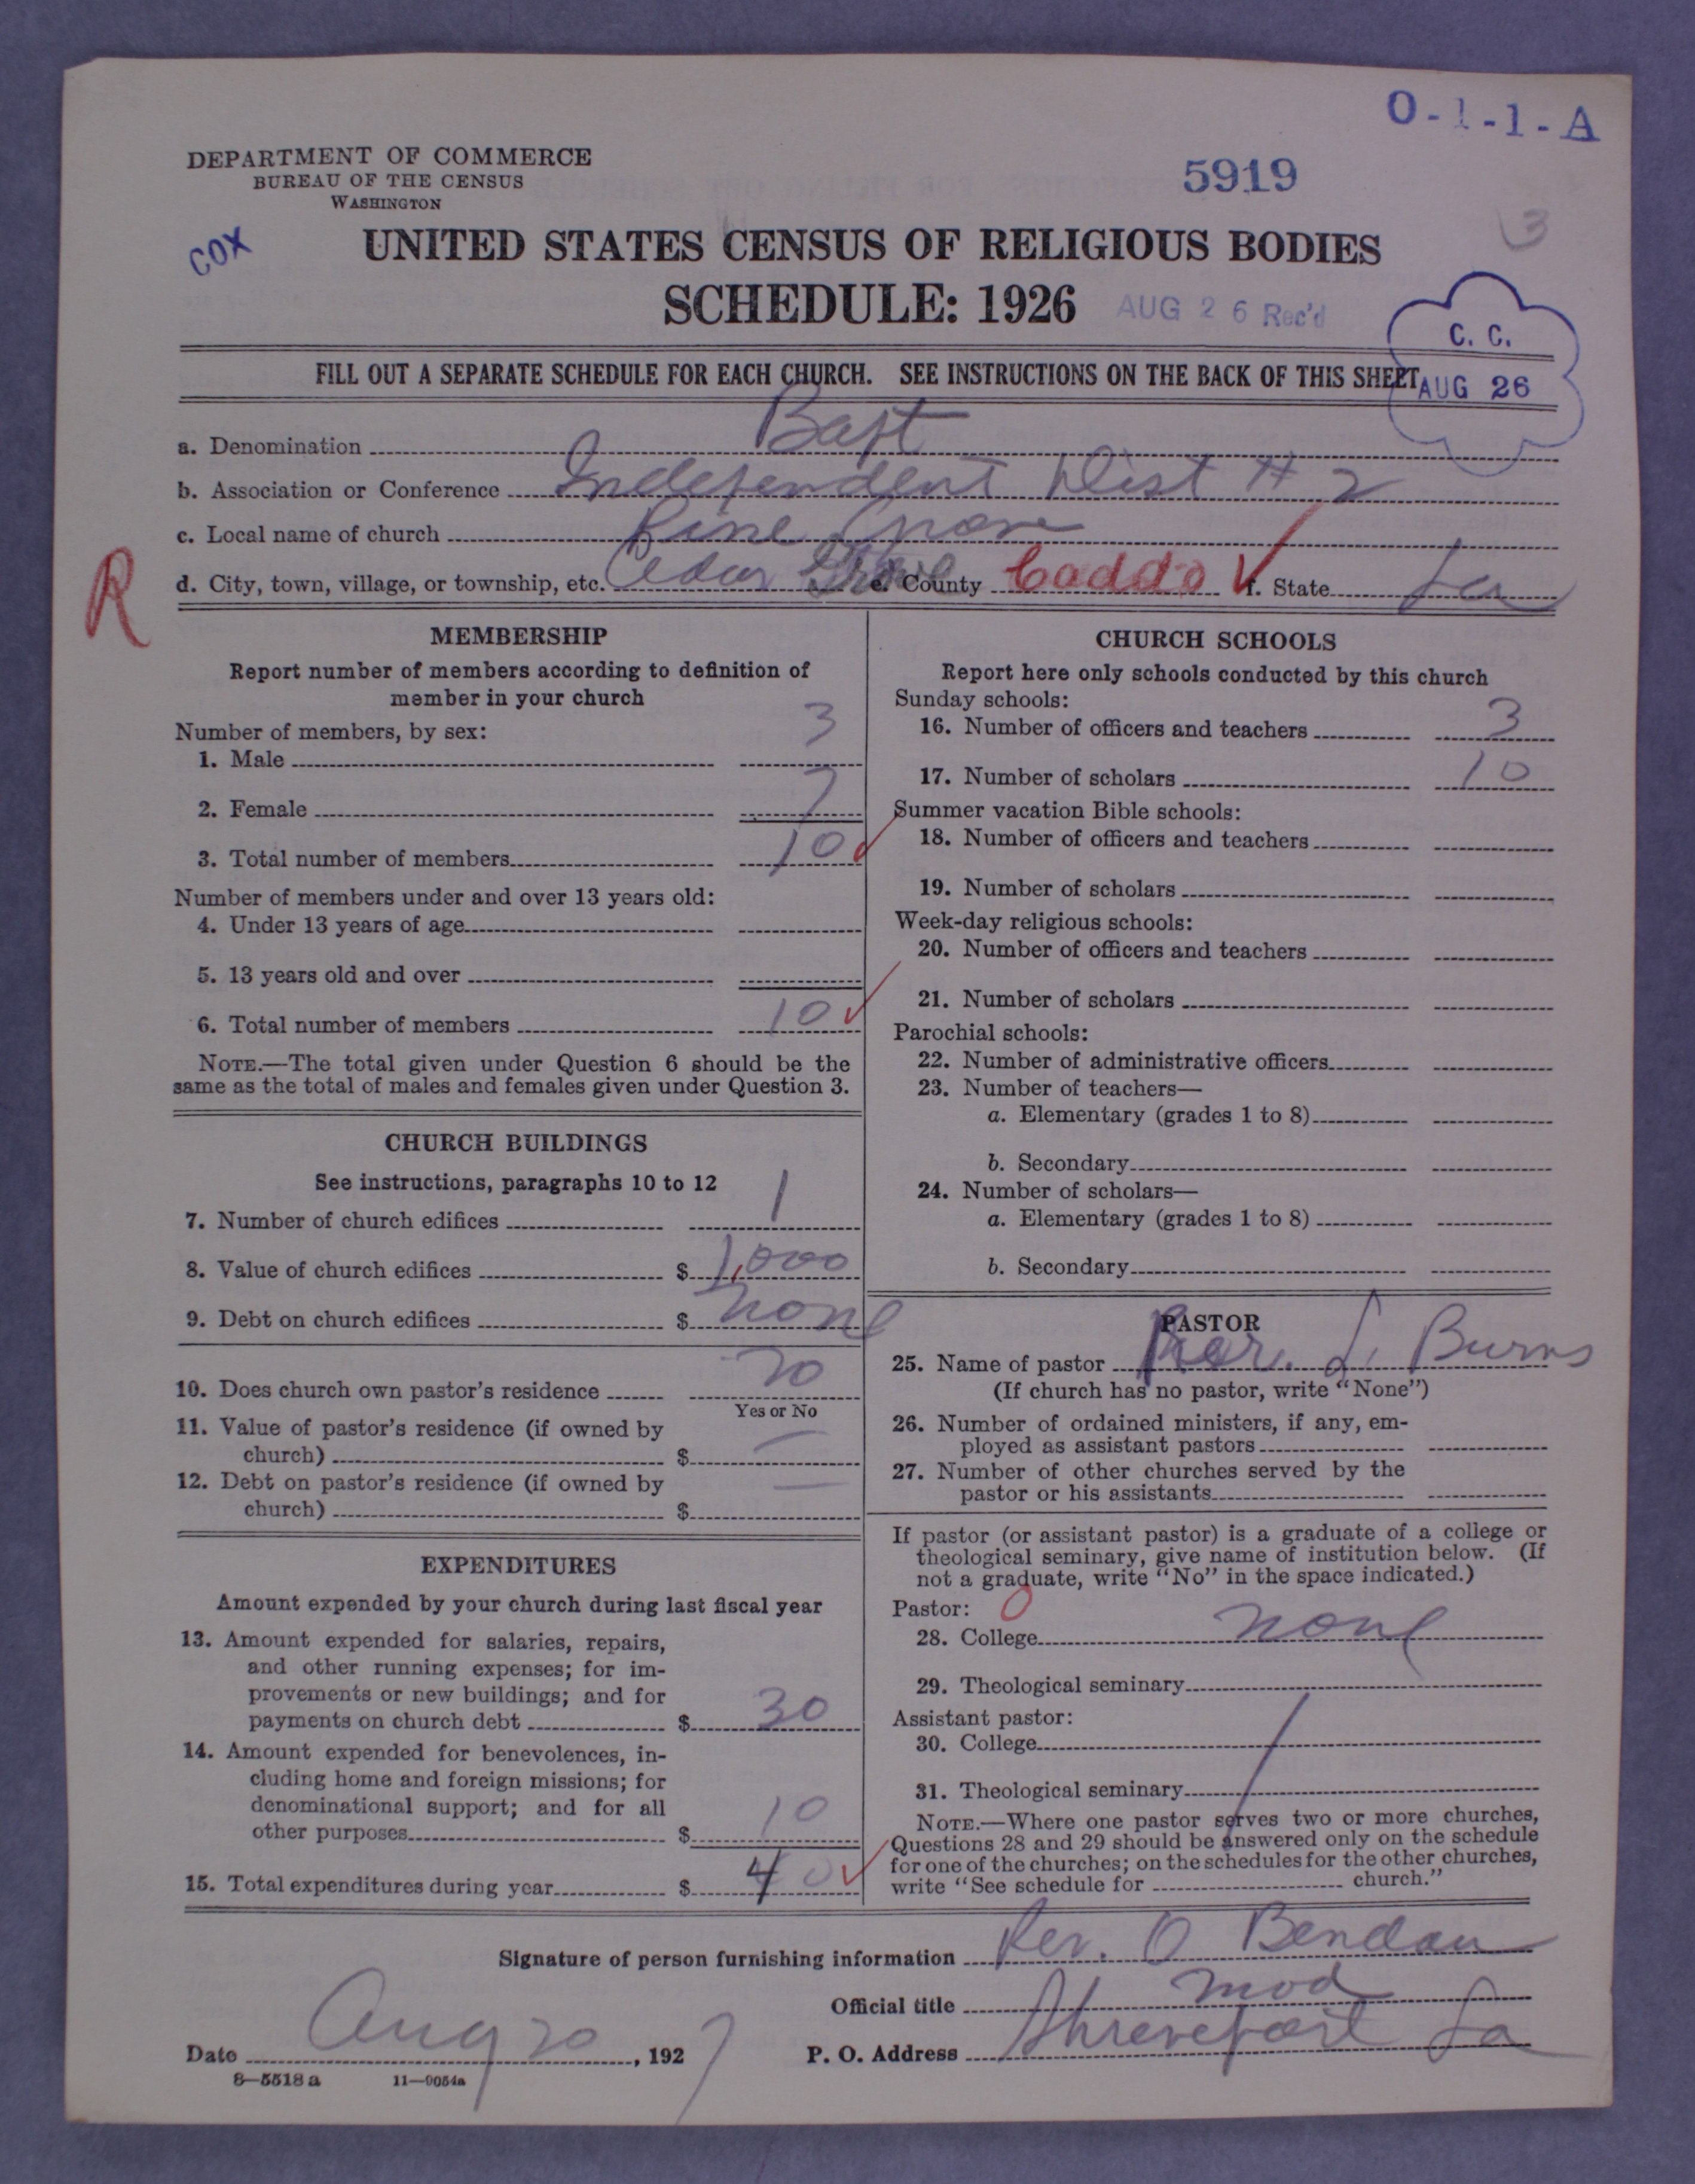 O-1-1-A
DEPARTMENT OF COMMERCE
BUREAU OF THE CENSUS
WASHINGTON
5919
3
COX
UNITED STATES CENSUS OF RELIGIOUS BODIES
SCHEDULE: 1926
AUG 26 Rec'd
C. C.
AUG 26
FILL OUT A SEPARATE SCHEDULE FOR EACH CHURCH. SEE INSTRUCTIONS ON THE BACK OF THIS SHEET
a. Denomination Bapt
b. Association or Conference Independent Dist # 2
c. Local name of church Pine Grove
R
d. City, town, village, or township, etc. Cedar Grove e. County Caddo f. State La
MEMBERSHIP
Report number of members according to definition of
member in your church
Number of members, by sex:
1. Male 3
2. Female 7
3. Total number of members 10
Number of members under and over 13 years old:
4. Under 13 years of age
5. 13 years old and over
6. Total number of members 10
NOTE.—The total given under Question 6 should be the
same as the total of males and females given under Question 3.
CHURCH BUILDINGS
See instructions, paragraphs 10 to 12
7. Number of church edifices 1
8. Value of church edifices $ 1,000
9. Debt on church edifices $ none
10. Does church own pastor's residence no
Yes or No
11. Value of pastor's residence (if owned by
church) $ —
12. Debt on pastor's residence (if owned by
church) $ —
EXPENDITURES
Amount expended by your church during last fiscal year
13. Amount expended for salaries, repairs,
and other running expenses; for im-
provements or new buildings; and for
payments on church debt $ 30
14. Amount expended for benevolences, in-
cluding home and foreign missions; for
denominational support; and for all
other purposes $ 10
15. Total expenditures during year $ 40
CHURCH SCHOOLS
Report here only schools conducted by this church
Sunday schools:
16. Number of officers and teachers 3
17. Number of scholars 10
Summer vacation Bible schools:
18. Number of officers and teachers
19. Number of scholars
Week-day religious schools:
20. Number of officers and teachers
21. Number of scholars
Parochial schools:
22. Number of administrative officers
23. Number of teachers—
a. Elementary (grades 1 to 8)
b. Secondary
24. Number of scholars—
a. Elementary (grades 1 to 8)
b. Secondary
PASTOR
25. Name of pastor Rev. L. Burns
(If church has no pastor, write "None")
26. Number of ordained ministers, if any, em-
ployed as assistant pastors
27. Number of other churches served by the
pastor or his assistants
If pastor (or assistant pastor) is a graduate of a college or
theological seminary, give name of institution below. (If
not a graduate, write "No" in the space indicated.)
Pastor: 0
28. College none
29. Theological seminary
Assistant pastor:
30. College
31. Theological seminary
NOTE.—Where one pastor serves two or more churches,
Questions 28 and 29 should be answered only on the schedule
for one of the churches; on the schedules for the other churches,
write "See schedule for church."
Signature of person furnishing information Rev. O Bendau
Official title mod
Date Aug 20, 1927 P. O. Address Shreveport La
8—5518 a 11—9054a